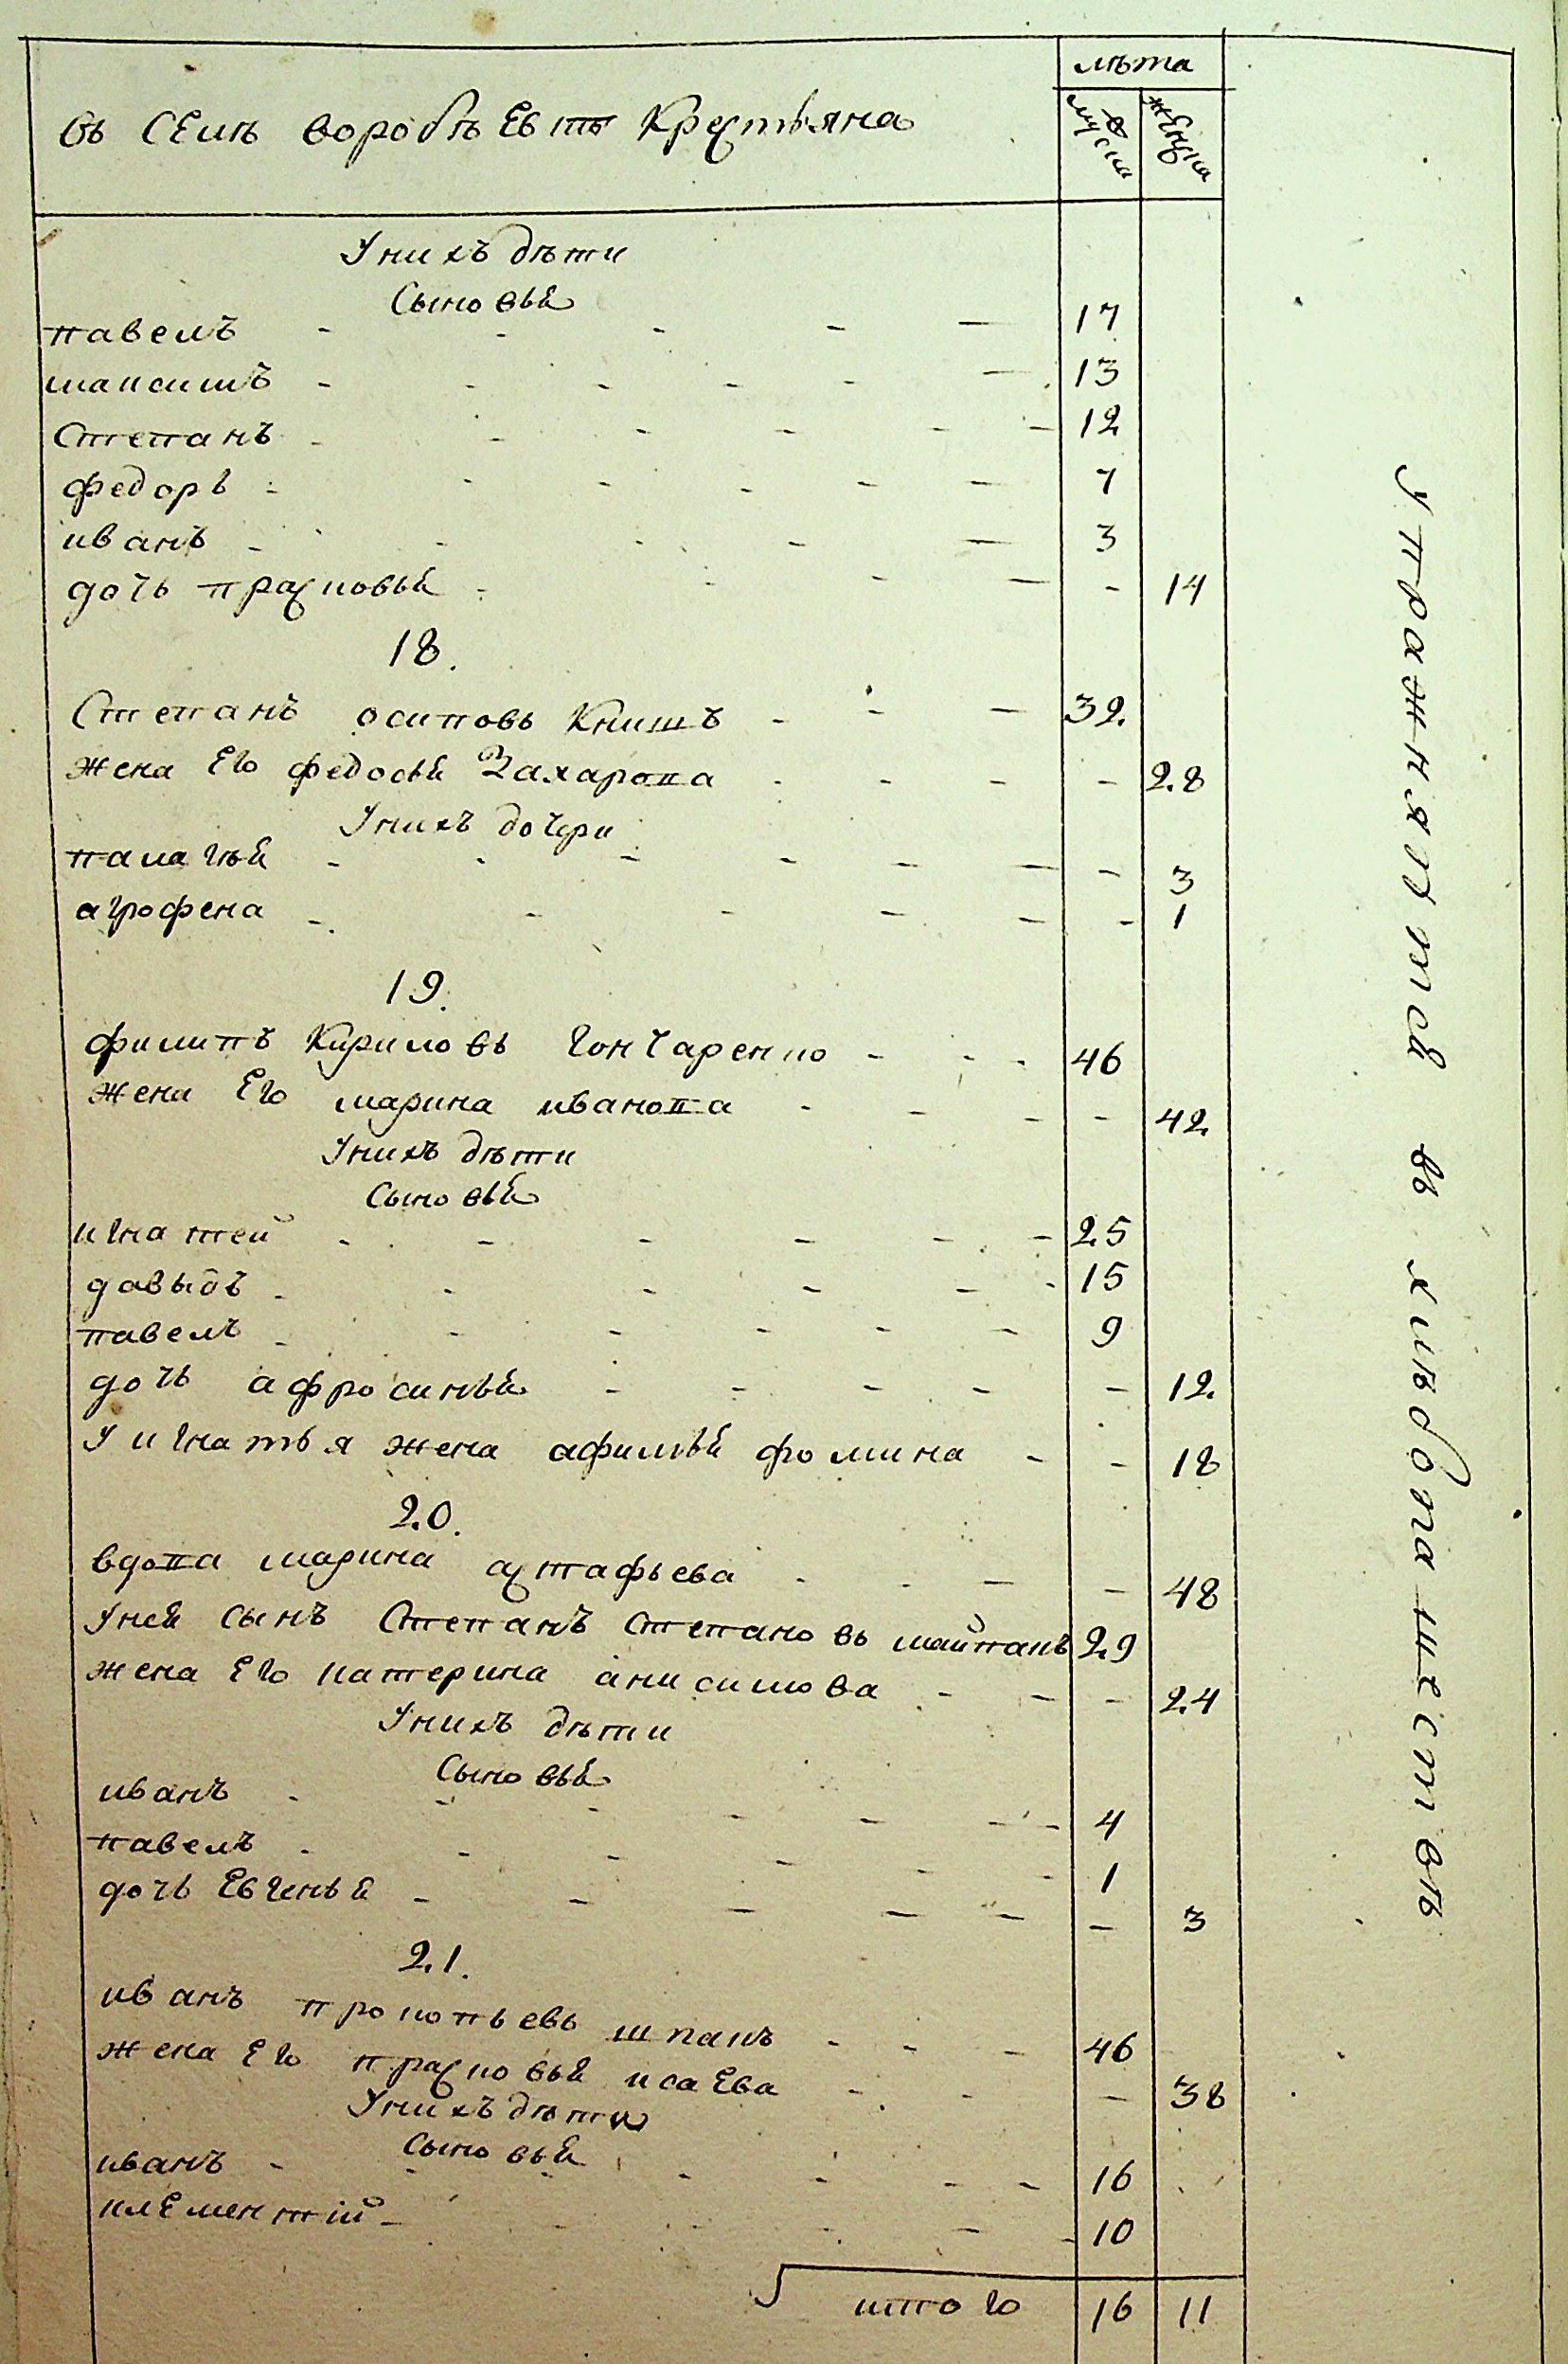 лѣта
въ Селѣ воробьевкѣ Крестьяна
мужска
женска
У нихъ дѣти
Сыновья
павелъ - - - - - 17
максимъ - - - - - - 13
Степанъ - - - - - - 12
федоръ - - - - - - 7
иванъ - - - - - 3
дочь прасковья - - - - - 14
18.
Степанъ осиповъ Книшъ - - - 32.
жена Его федосья Захарова - - - - 28
У нихъ дочери
палагѣя - - - - - - - 3
агрофена - - - - - - 1
19.
филипъ Кириловъ гончаренко - - - 46
жена Его марина иванова - - - - 42
У нихъ дѣти
Сыновья
игнатей - - - - - - 25
давыдъ - - - - - - 15
павелъ - - - - - - 9
дочь афросинья - - - - - 12.
У игнатья жена афимья фомина - - 18
20.
вдова марина астафьева - - - - 48
У ней сынъ Степанъ степановъ шайпанъ 29
жена Его катерина анисимова - - - 24
У нихъ дѣти
Сыновья
иванъ - - - - - - - 4
павелъ - - - - - - 1
дочь Евгенья - - - - - - 3
21.
иванъ прокопьевъ шпакъ - - - 46
жена Его прасковья исаева - - - - 38
У нихъ дѣти
сыновья
иванъ - - - - - - - 16
клементій - - - - - - 10
итого 16 11
упражняются въ хлѣбопашествѣ